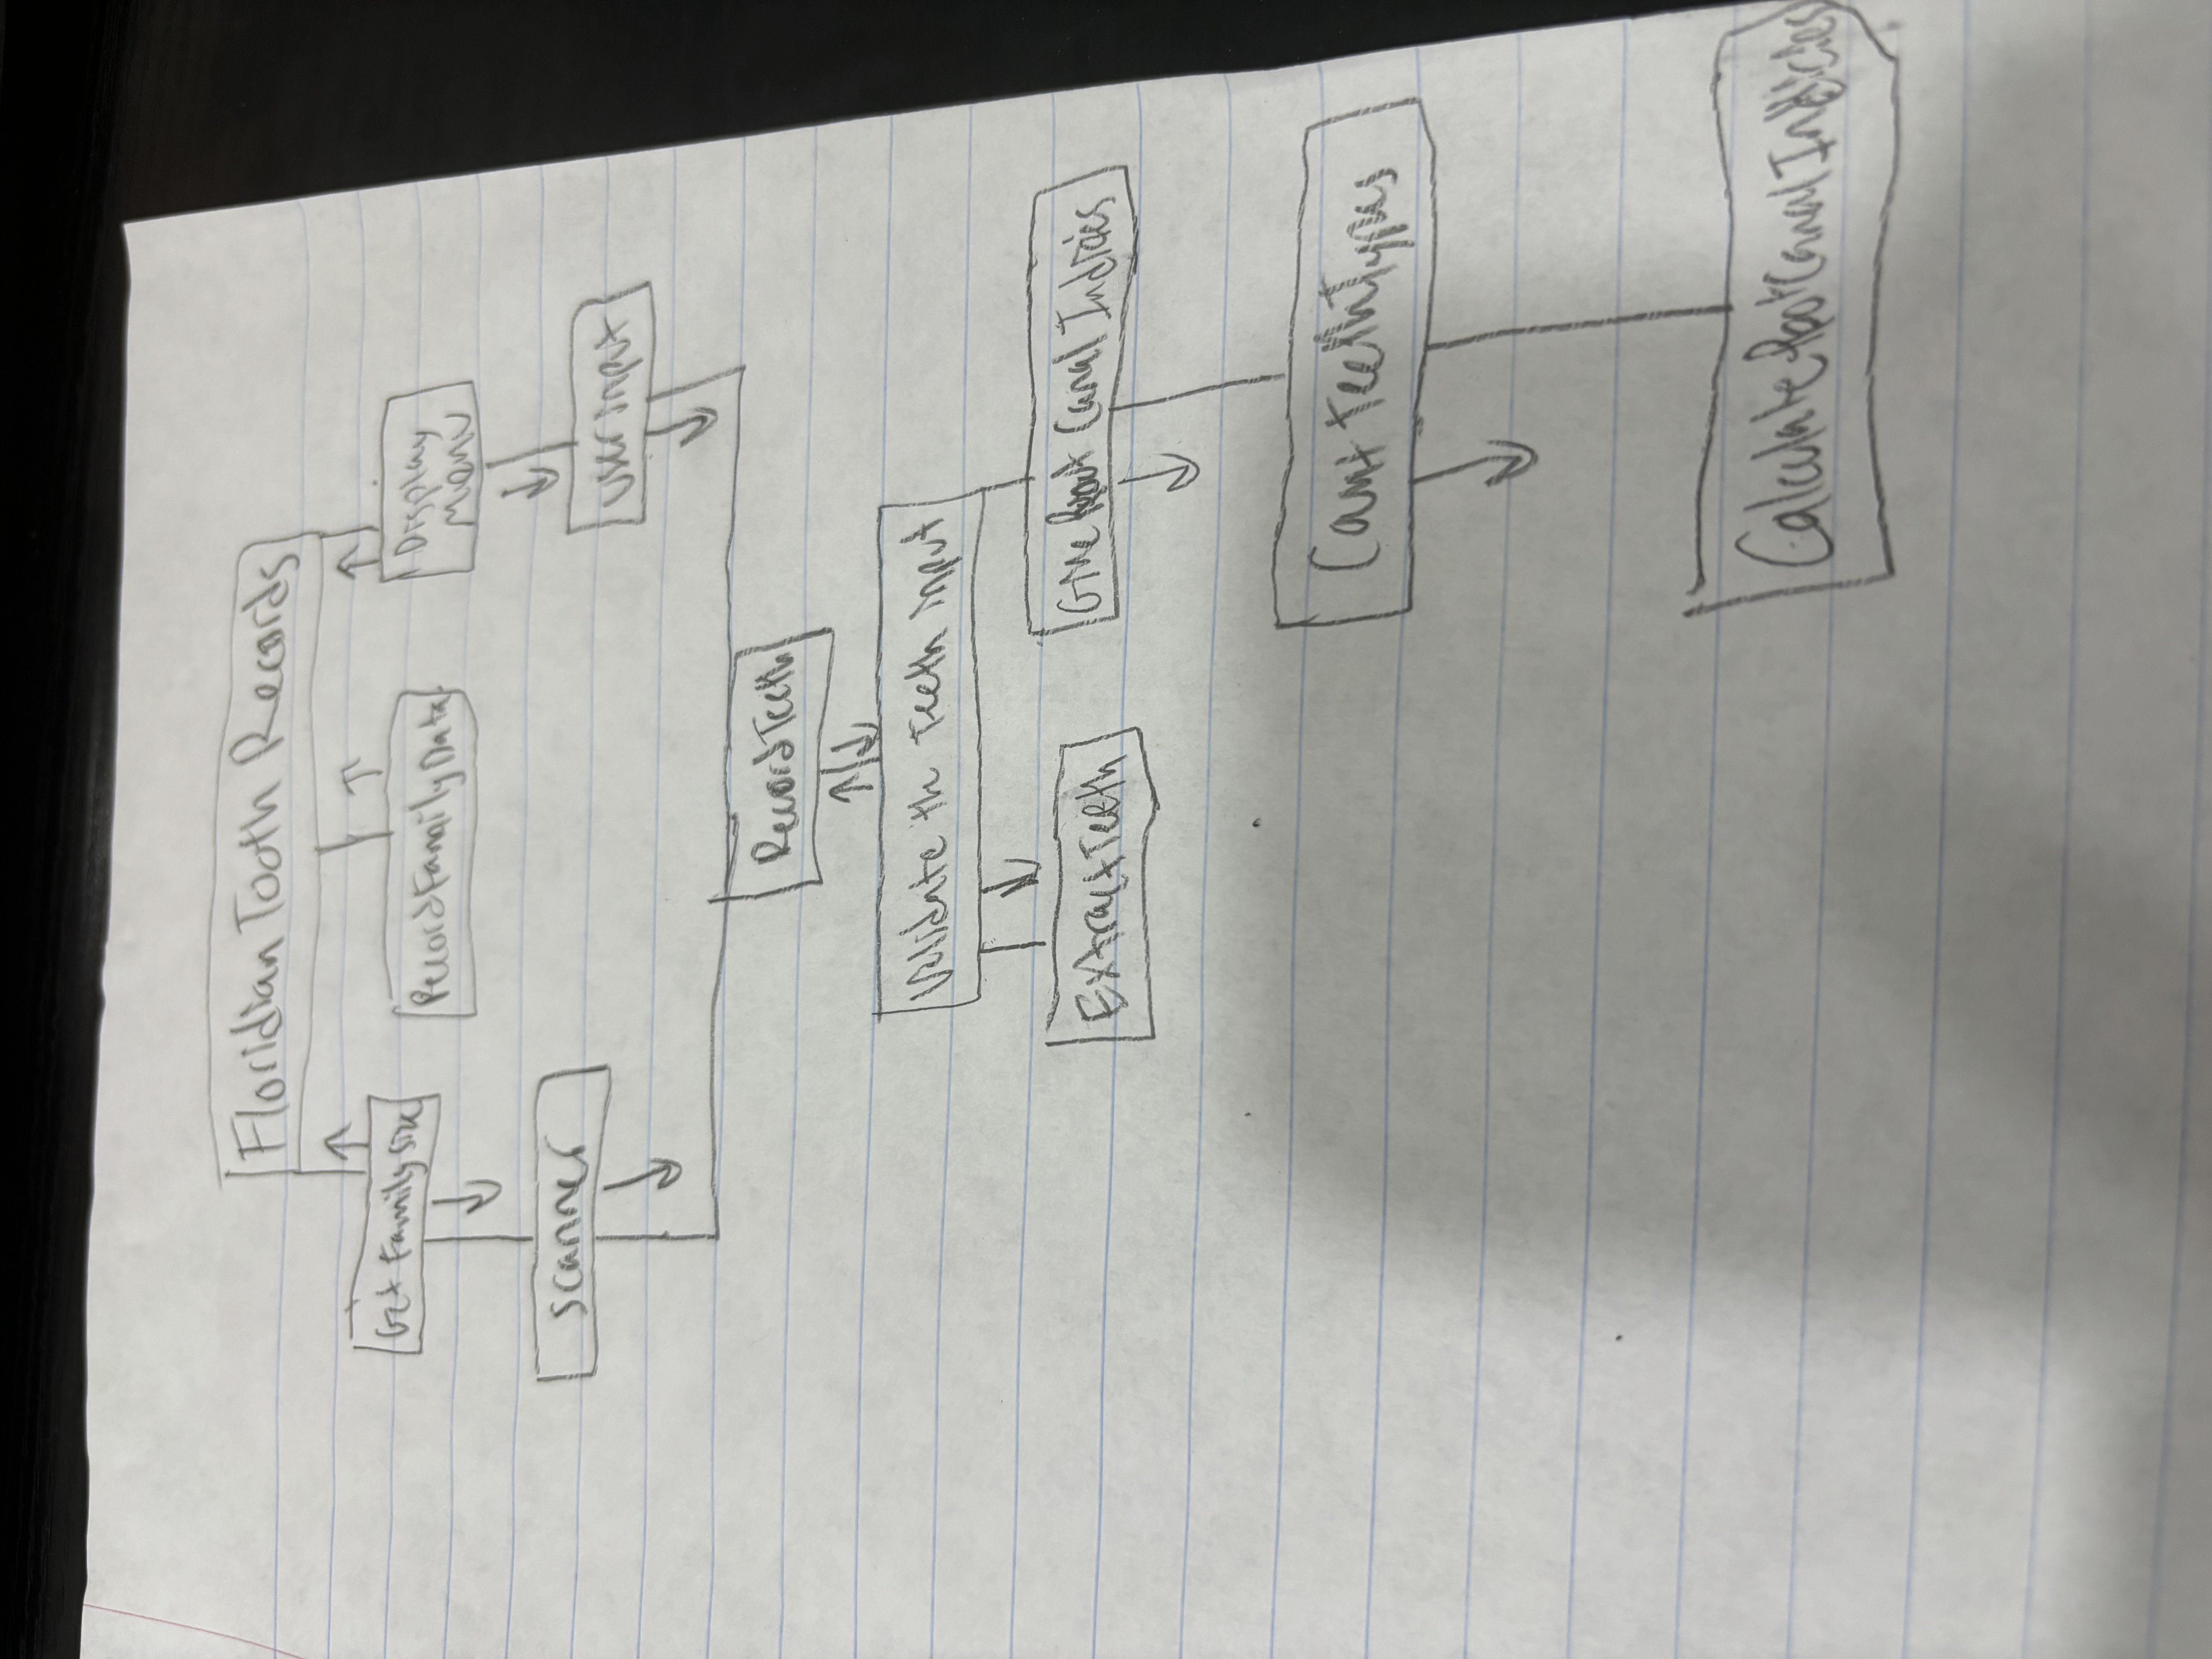 Floridian Tooth Records
Get Family Size
RecordFamilyData
Display
Menu
scanner
user input
RecordTeeth
Validate the Teeth input
ExtractTeeth
Give Root Canal Indicies
Count TeethTypes
CalculateRootCanalIndicies